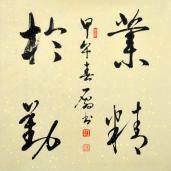 業精
於勤
甲午春
书